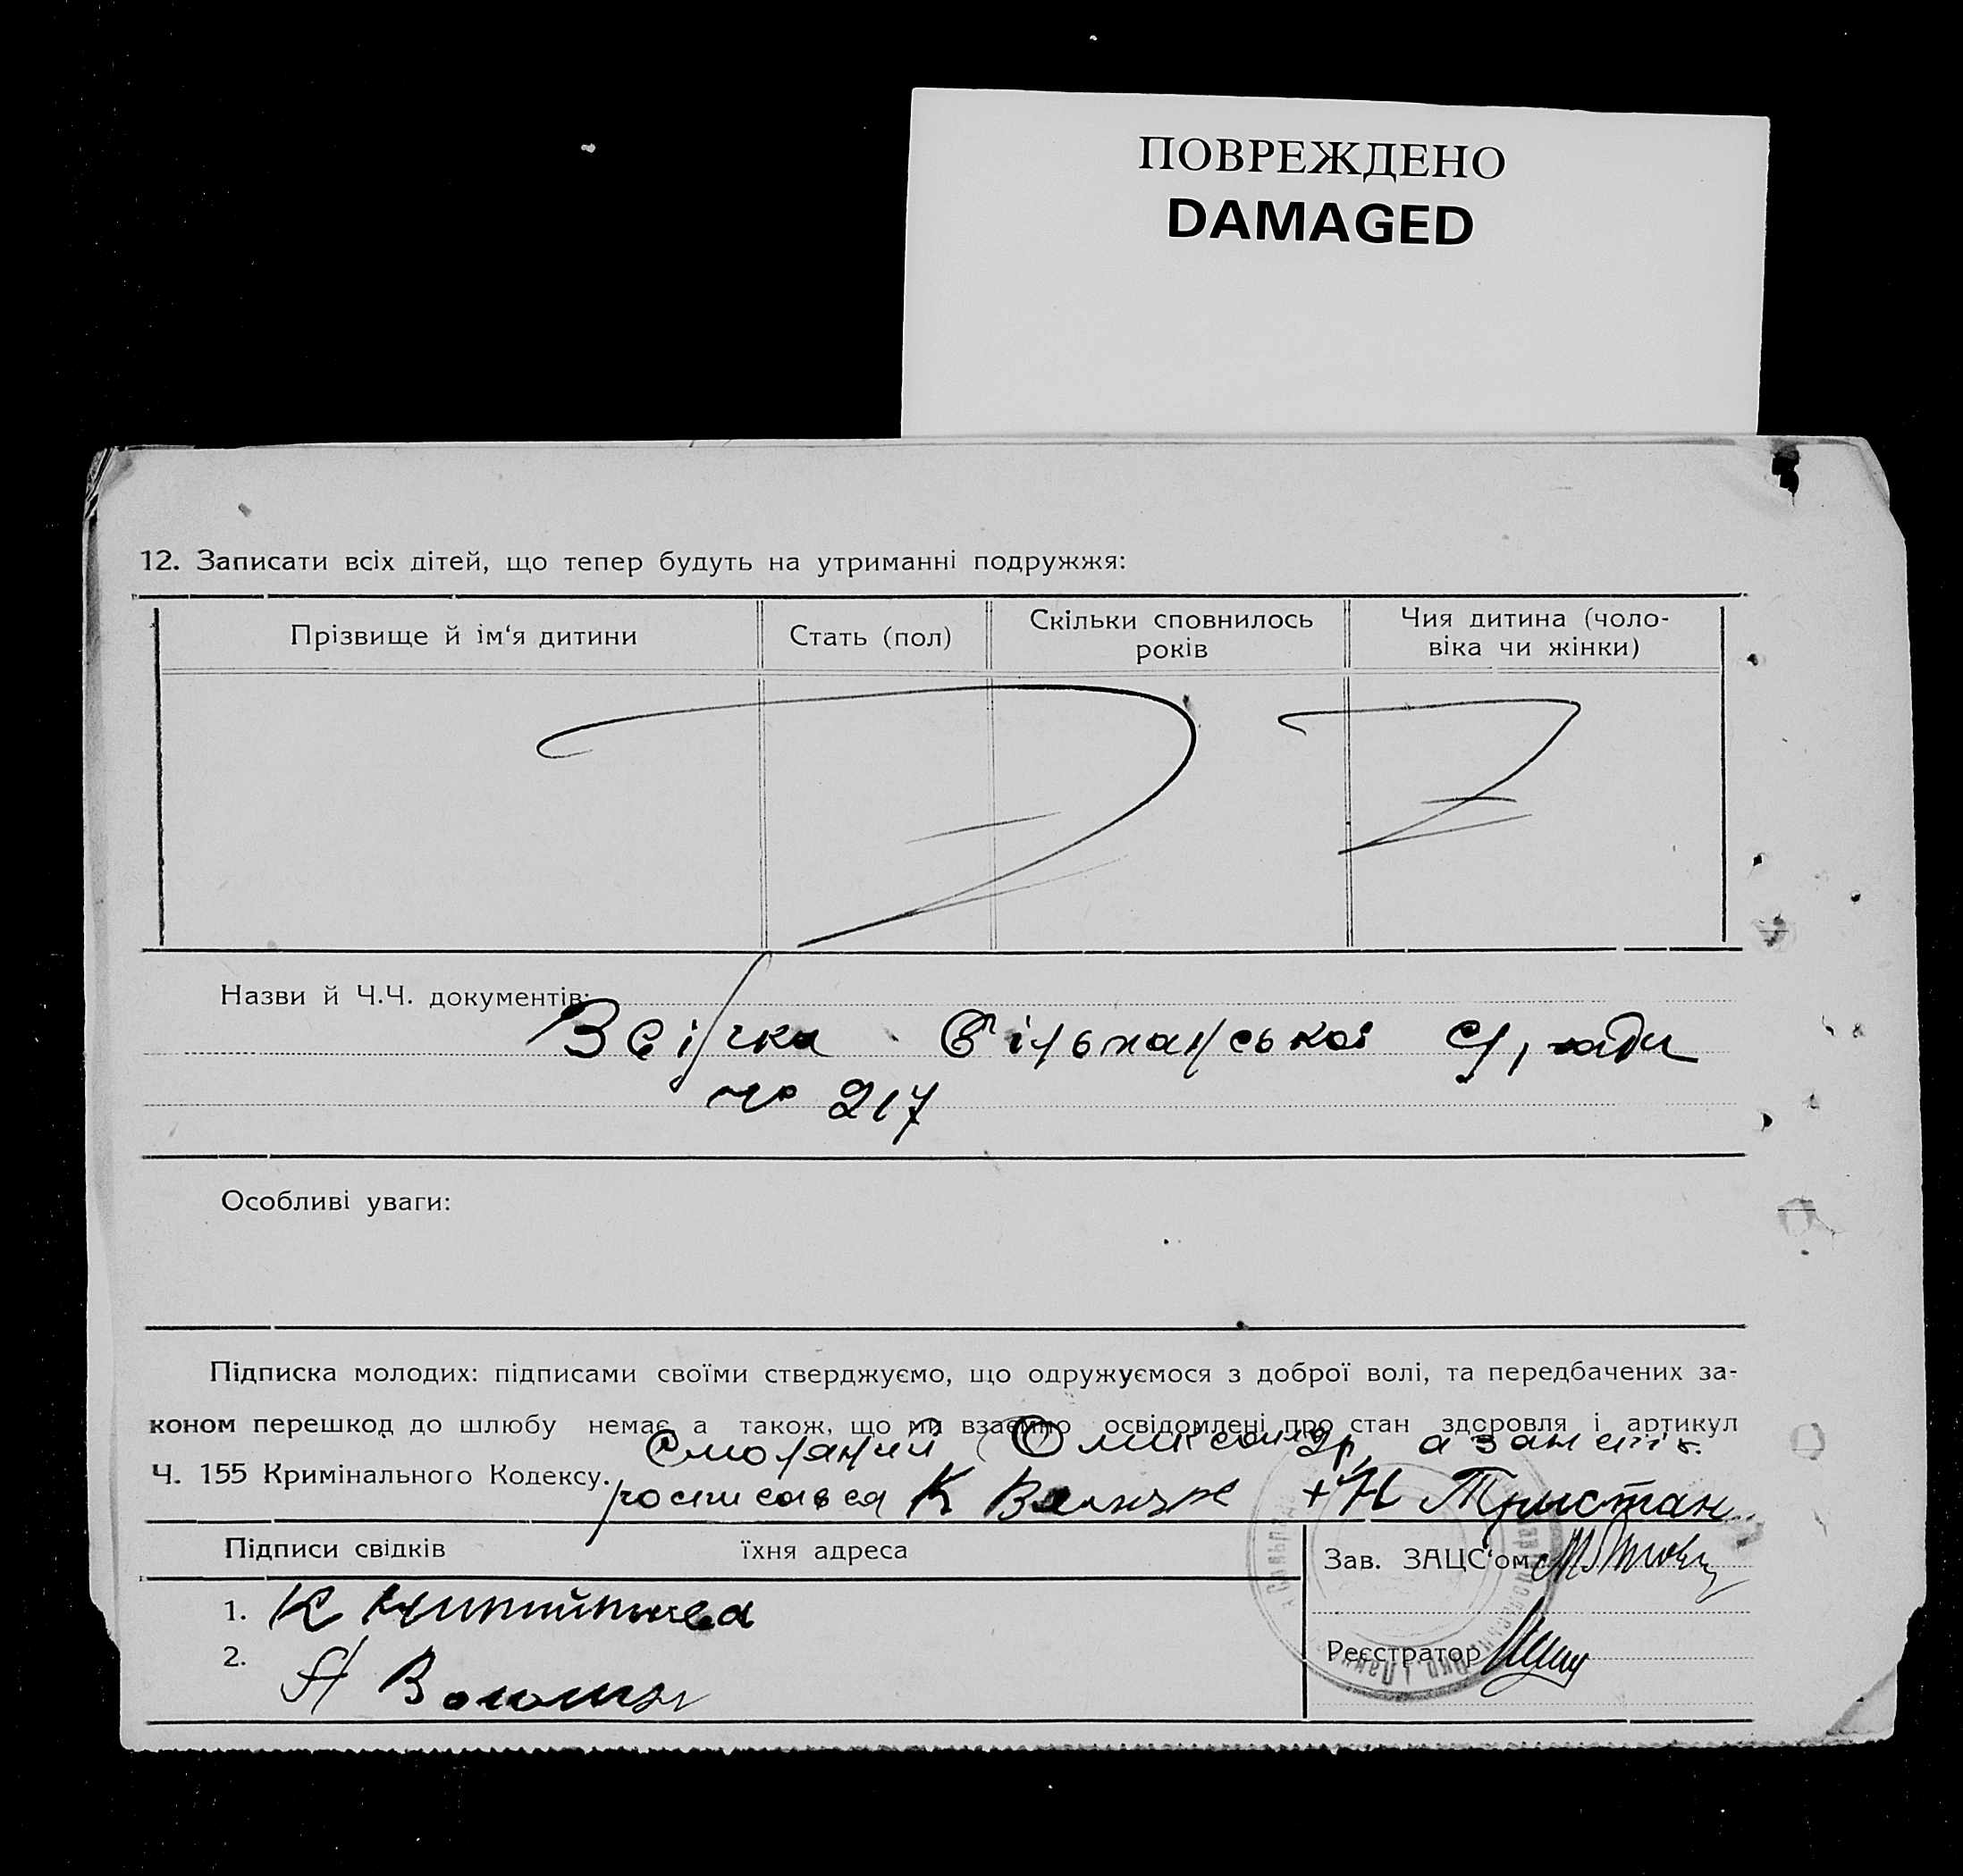 ПОВРЕЖДЕНО
DAMAGED
12. Записати всіх дітей, що тепер будуть на утриманні подружжя:
Прізвище й ім'я дитини
Стать (пол)
Скільки сповнилось
років
Чия дитина (чоло-
віка чи жінки)
Назви й Ч.Ч. документів:
Вільжанської
№ 217
Особливі уваги:
Підписка молодих: підписами своїми стверджуємо, що одружуємося з доброї волі, та передбачених за-
коном перешкод до шлюбу немає а також, що ми взаємно освідомлені про стан здоровля і артикул
Ч. 155 Кримінального Кодексу.
росписався К Н Тристан
Підписи свідків їхня адреса
Зав. ЗАЦС'ом
1. К
2.
Реєстратор